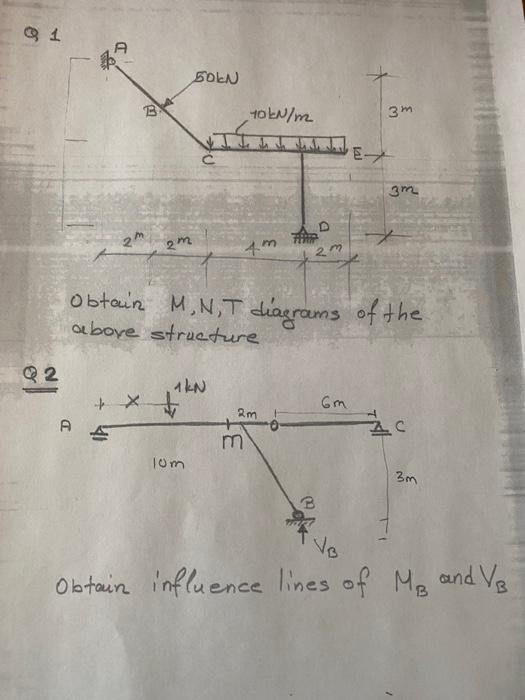 Q 1
A
50kN
3m
B
10kN/m
C
E
3m
D
2m 2m 4m 2m
Obtain M, N, T diagrams of the
above structure
Q 2
x 1kN
2m 6m
A C
m
10m
3m
B
VB
Obtain influence lines of MB and VB